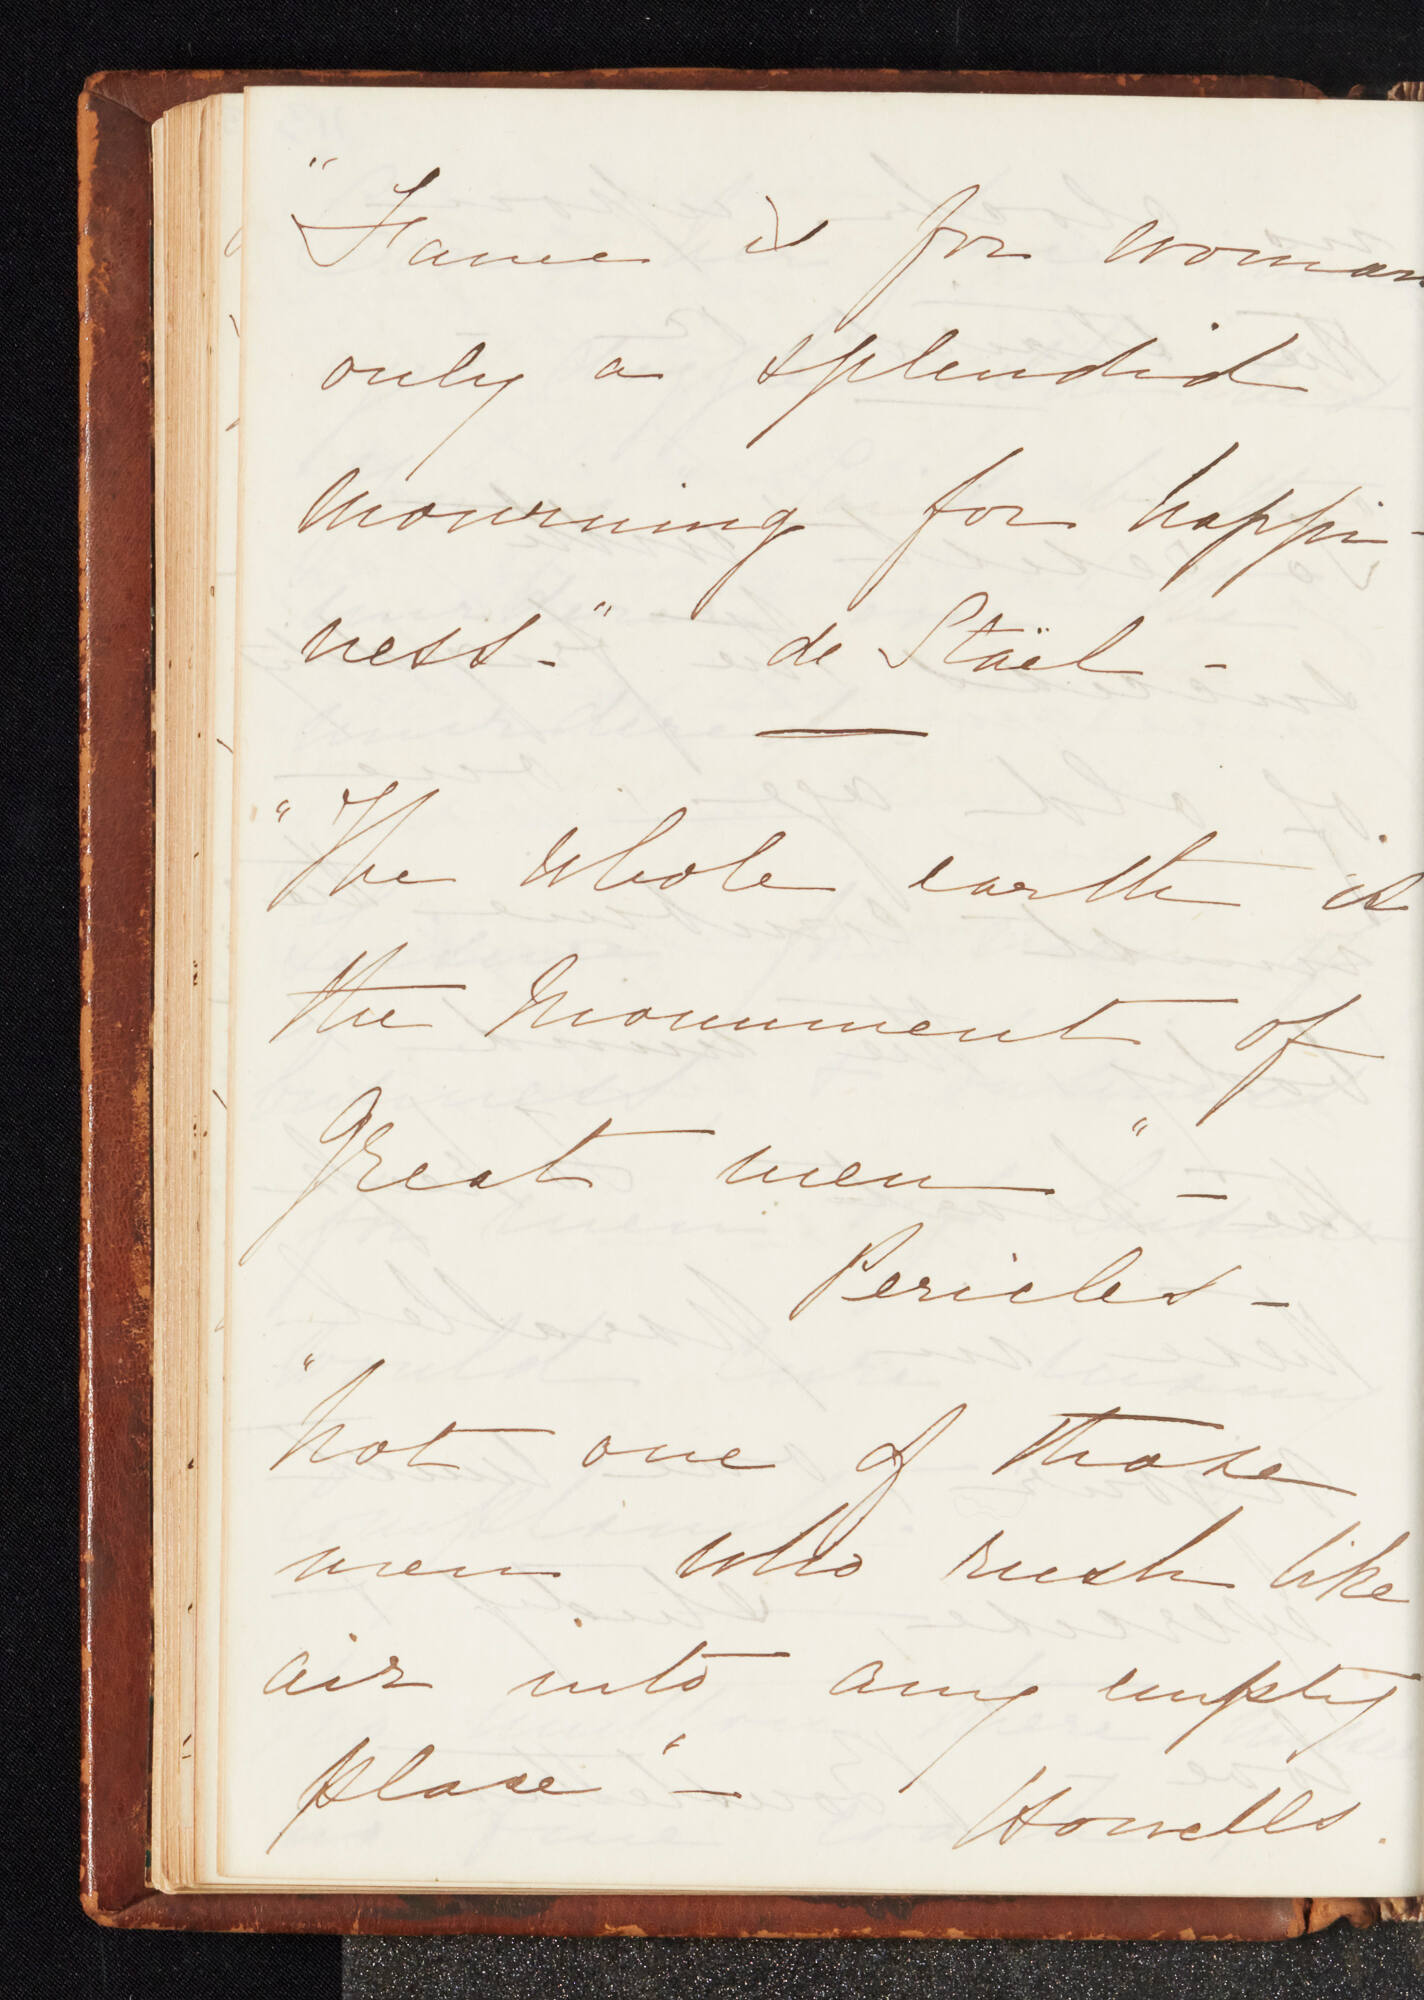 "Fame is for woman
only a splendid
mourning for happi-
ness-" de Staël -
"The whole earth is
the monument of
great men" -
Pericles -
"Not one of those
men who rush like
air into any empty
place" - Howells.